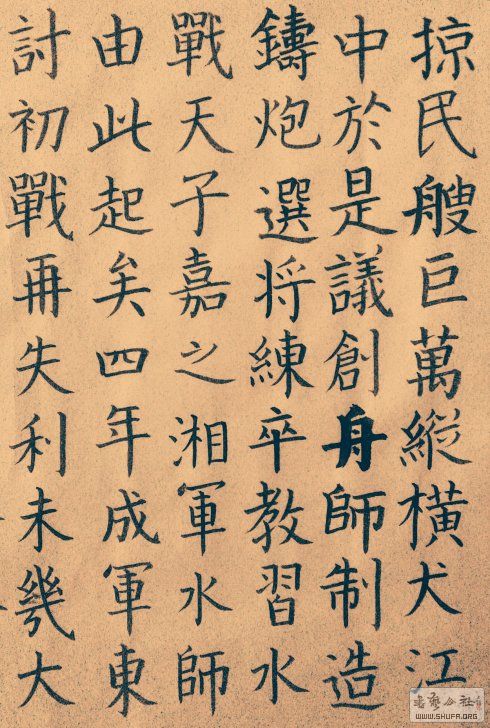 掠民艘巨萬縱橫犬江
中於是議創舟師制造
鑄炮選将練卒教習水
戰天子嘉之湘軍水師
由此起矣四年成軍東
討初戰再失利未幾大
书艺公社
WWW.SHUFA.ORG